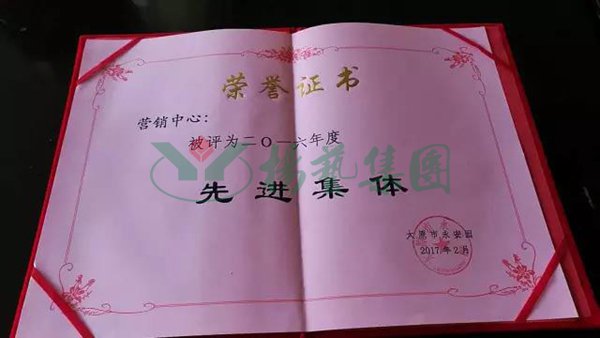 荣誉证书
营销中心：
被评为二〇一六年度
杨艺集团
先进集体
太原市永安园
2017年2月